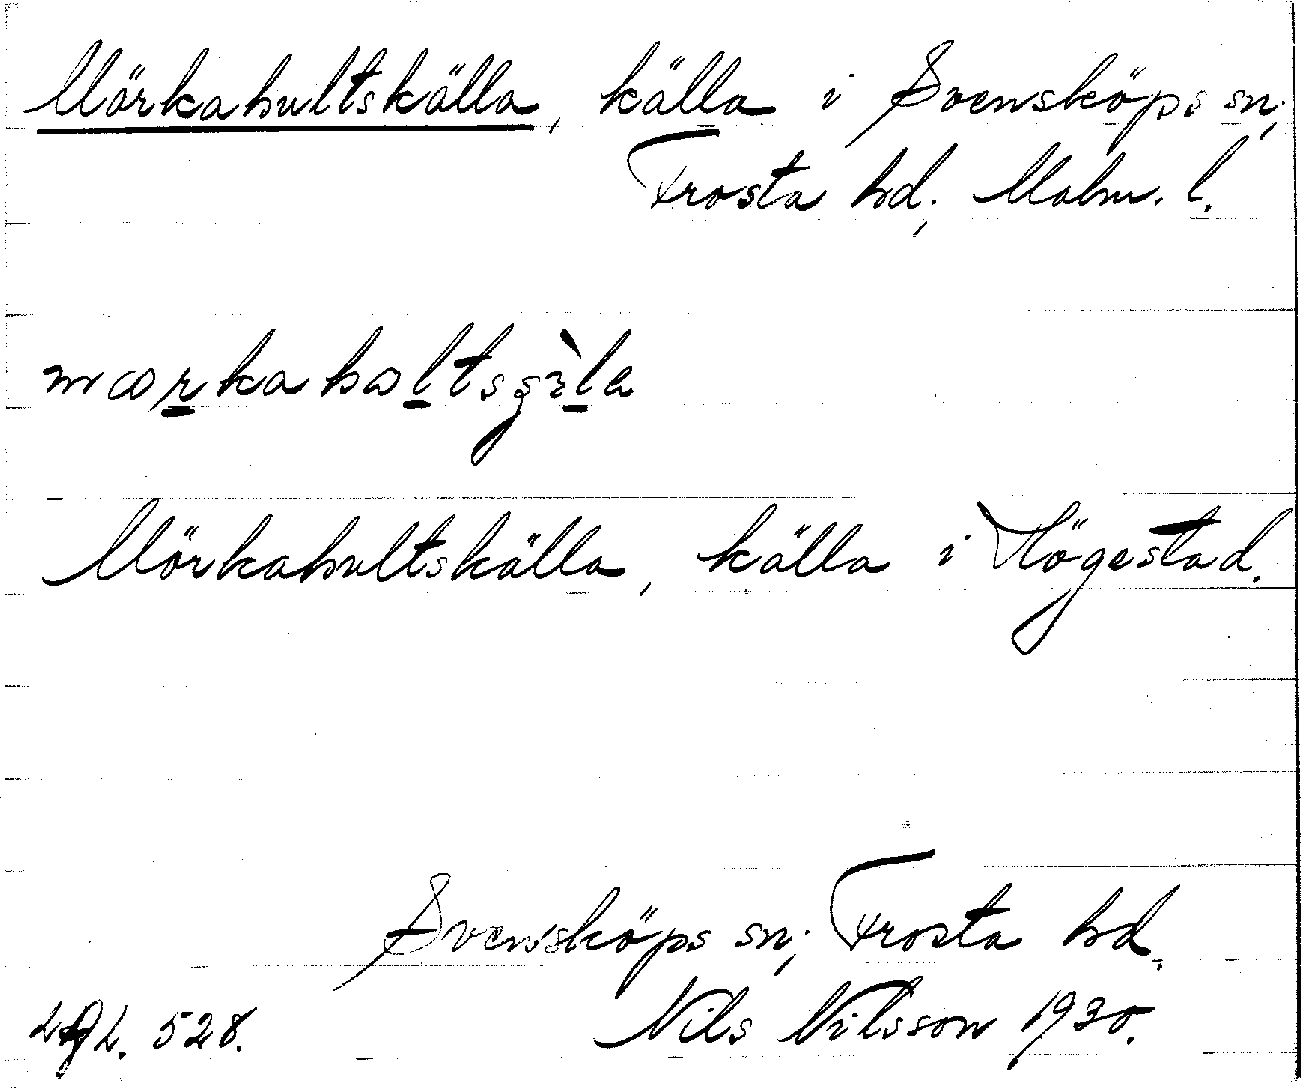 Mörkahultskälla, källa i Svensköps sn;
Frosta hd; Malm. l.
mωrkahωltsgìla
Mörkahultskälla, källa i Högestad.
Svensköps sn; Frosta hd.
Nils Nilsson 1930.
528.